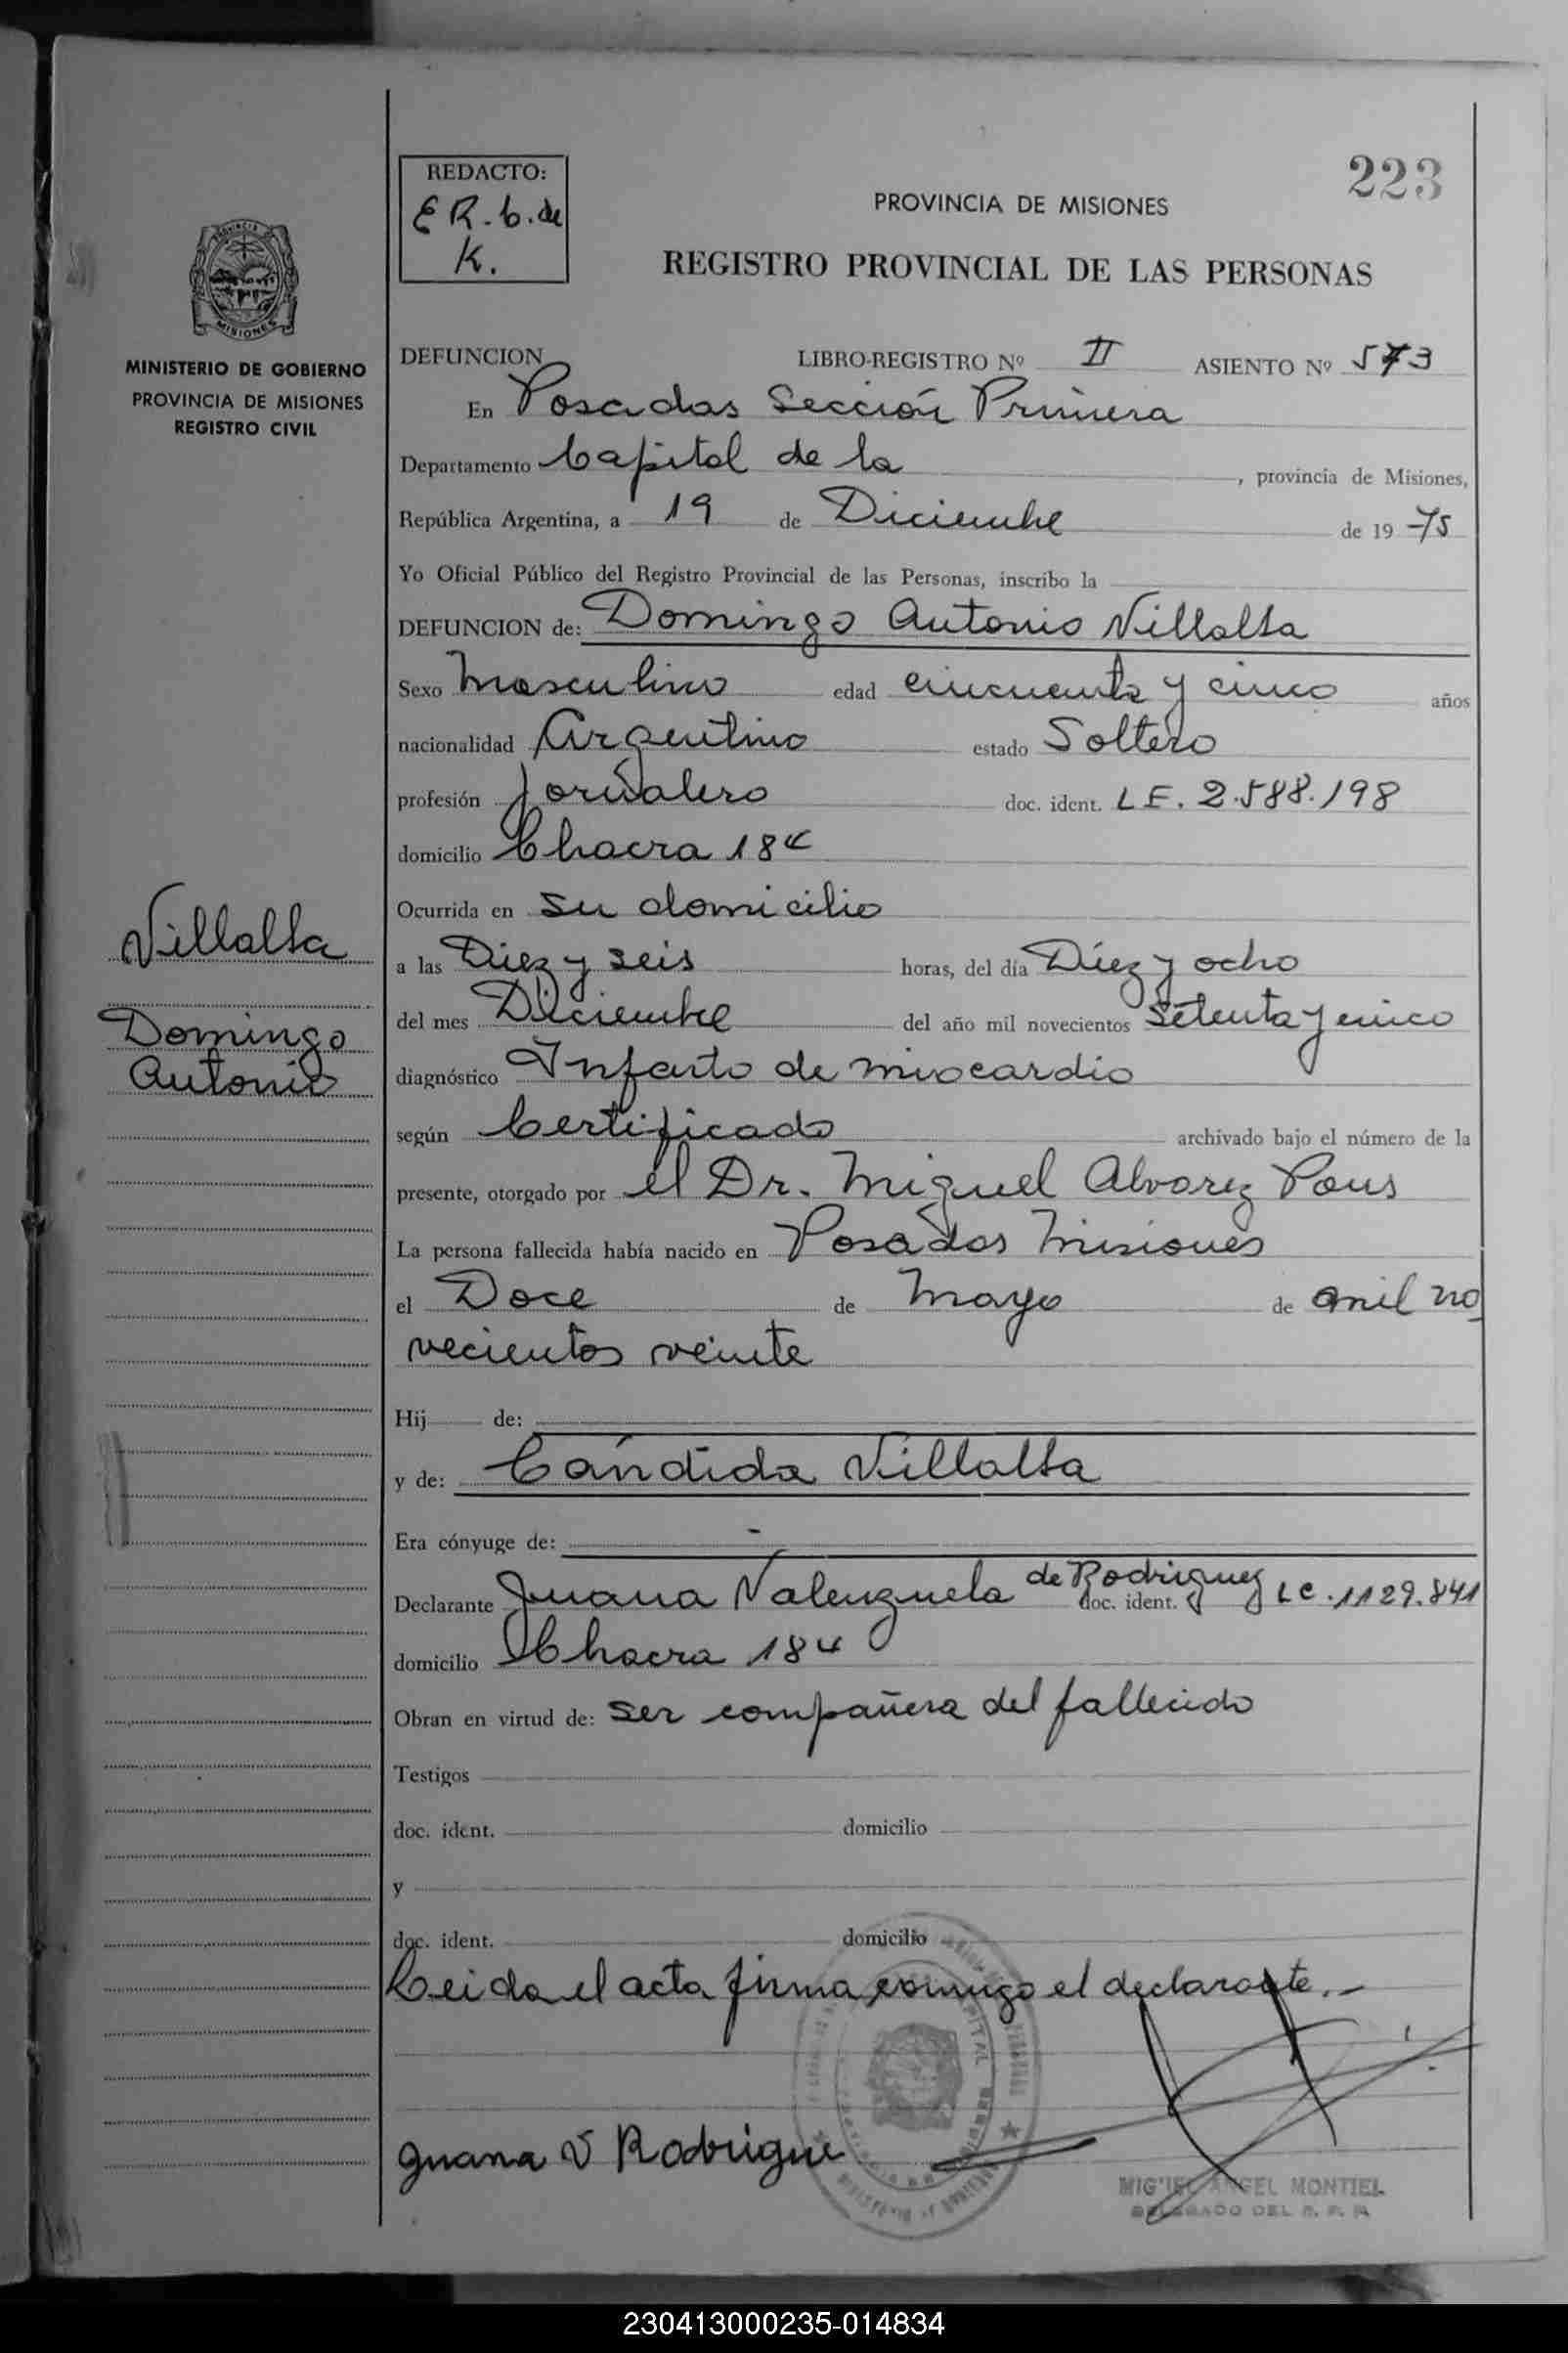 223
REDACTO:
E R. C. de
K.
PROVINCIA DE MISIONES
REGISTRO PROVINCIAL DE LAS PERSONAS
MISIONES
MINISTERIO DE GOBIERNO
PROVINCIA DE MISIONES
REGISTRO CIVIL
DEFUNCION LIBRO-REGISTRO Nº II ASIENTO Nº 573
En Posadas Sección Primera
Departamento Capital de la , provincia de Misiones,
República Argentina, a 19 de Diciembre de 19 75
Yo Oficial Público del Registro Provincial de las Personas, inscribo la
DEFUNCION de: Domingo Antonio Villalta
Sexo Masculino edad cincuenta y cinco años
nacionalidad Argentino estado Soltero
profesión Jornalero doc. ident. L E. 2.588.198
domicilio Chacra 184
Ocurrida en su domicilio
a las Diez y seis horas, del día Diez y ocho
del mes Diciembre del año mil novecientos Setenta y cinco
diagnóstico Infarto de miocardio
según Certificado archivado bajo el número de la
presente, otorgado por el Dr. Miguel Alvarez Pons
La persona fallecida había nacido en Posadas Misiones
el Doce de Mayo de mil no
vecientos veinte
Hij de:
y de: Cándida Villalta
Era cónyuge de: -
Declarante Juana Valenzuela de Rodriguez doc. ident. LC. 1129.841
domicilio Chacra 184
Obran en virtud de: ser compañera del fallecido
Testigos
doc. ident. domicilio
y
doc. ident. domicilio
Leida el acta firma conmigo el declarante.-
Juana V Rodrigue
MIGUEL ANGEL MONTIEL
DELEGADO DEL R. P. P.
Villalta
Domingo
Antonio
230413000235-014834